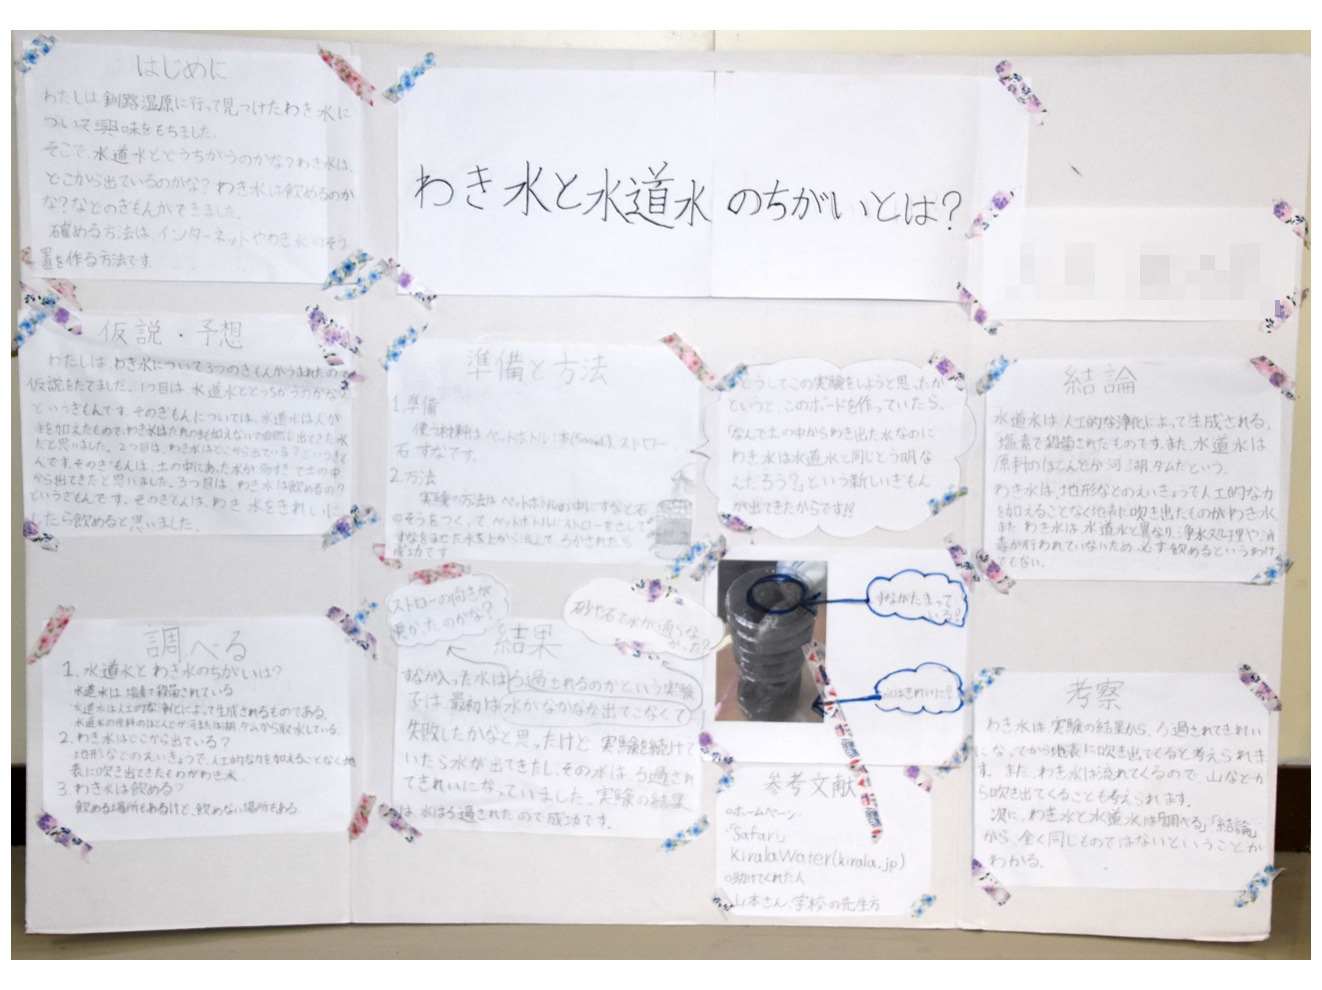 はじめに
わたしは釧路湿原に行って見つけたわき水に
ついて興味をもちました。
そこで、水道水とどうちがうのかな?わき水は、
どこから出ているのかな?わき水は飲めるのか
な?などのぎもんができました。
確める方法は、インターネットやわき水のそう
置を作る方法です。
わき水と水道水のちがいとは?
仮説・予想
わたしは、わき水について3つのぎもんがうまれたので
仮説をたてました。1つ目は、水道水とどうちがうのかな
というぎもんです。そのぎもんについては、水道水は人が
手を加えたもので、わき水は自然に出てきた水
だと思いました。2つ目は、わき水はどこから出ている?というぎも
んです。そのぎもんは、土の中にあった水が土の中
から出てきたと思いました。3つ目は、わき水は飲めるの?
というぎもんです。そのぎもんは、わき水をきれいに
したら飲めると思いました。
調べる
1.水道水とわき水のちがいは?
水道水は塩素で殺菌されている。
水道水は人工的な浄化によって生成されるものである。
水道水の原料のほとんどが河または湖、ダムから取水している。
2.わき水はどこから出ている?
地形などのえいきょうで、人工的な力を加えることなく地
表に吹き出てきたものがわき水。
3.わき水は飲める?
飲める場所もあるけど、飲めない場所もある。
準備と方法
1.準備
使う材料は、ペットボトル1本(500ml)、ストロー
石、すなです。
2.方法
実験の方法は、ペットボトルの中にすなと石
のそうをつくって、ペットボトルにストローをさして
すなをまぜた水を上から流して、ろかされたら
成功です。
どうしてこの実験をしようと思ったか
というと、このボードを作っていたら、
「なんで土の中からわき出た水なのに
わき水は水道水と同じとう明な
んだろう?」という新しいぎもん
が出てきたからです!!
ストローの向きが
悪かったのかな?
砂や石で水が通らな
かった?
結果
すなが入った水はろ過されるのかという実験
では、最初は水がなかなか出てこなくて
失敗したかなと思ったけど、実験を続けて
いたら水が出てきたし、その水は、ろ過され
てきれいになっていました。実験の結果
は、水はろ過されたので成功です。
すながたまって
いる?
水はきれいに?
参考文献
○ホームページ
「Safari」
KiralaWater(kirala.jp)
○助けてくれた人
山本さん、学校の先生方
結論
水道水は人工的な浄化によって生成される、
塩素で殺菌されたものです。また、水道水は、
原料のほとんどが河、湖、ダムだという。
わき水は、地形などのえいきょうで人工的な力
を加えることなく地表に吹き出たものがわき水。
また、わき水は、水道水と異なり、浄水処理や消
毒が行われていないため、必ず飲めるというわけ
でもない。
考察
わき水は、実験の結果から、ろ過されてきれい
になってから地表に吹き出てくると考えられま
す。また、わき水は流れてくるので、山などか
ら吹き出てくることも考えられます。
次に、わき水と水道水は「調べる」「結論」
から、全く同じものではないということが
わかる。